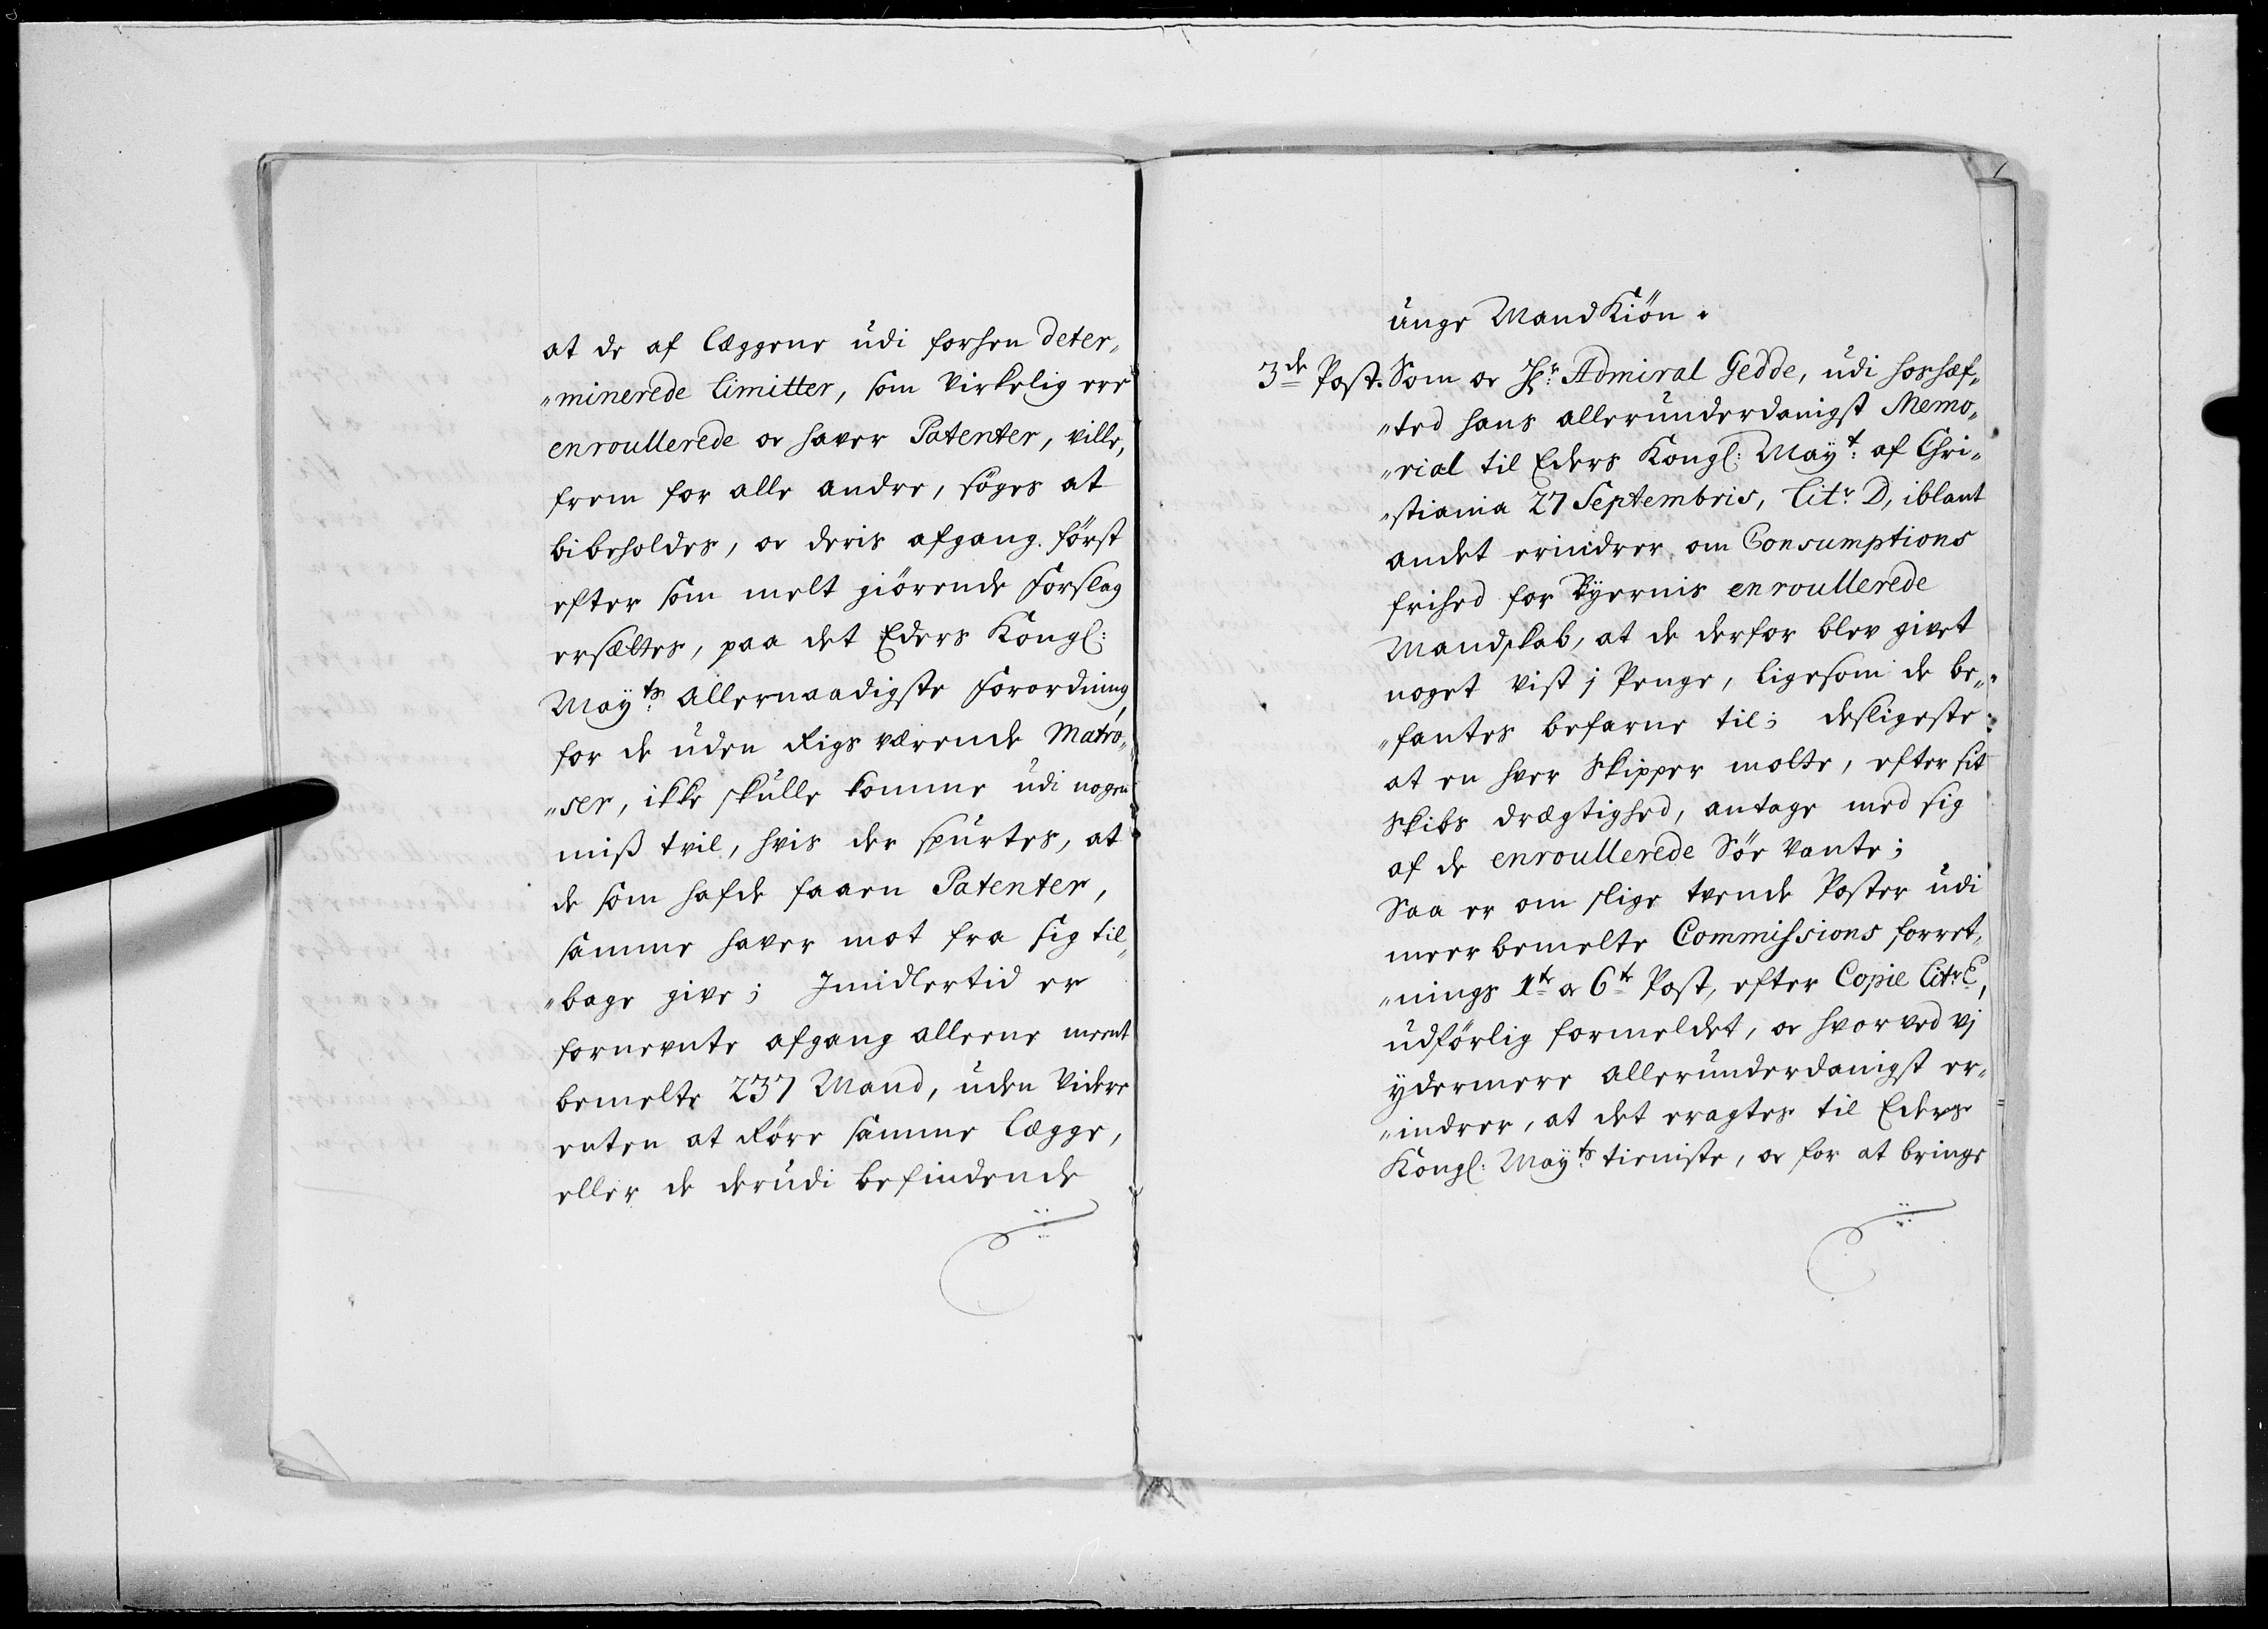 at de af læggene udi forhen deter„
„minerede limitter, som Virkelig ere
enroullerede oc haver Patenter, ville,
frem for alle andre, söges at
bibeholdes, oc deris afgang först
efter som melt giörende forslag
ersættes, paa det Eders Kongl:
Mayts: Allernaadigste Forordning,
for de uden Rigs værende Matro„
„ser, ikke skulle komme udi nogen
miß tvil, hvis der spurtes, at
de som hafde faaen Patenter,
samme haver mot fra sig til„
„bage give; Imidlertid er
fornevnte afgang alleene meent
bemelte 237 Mand, uden Videre
enten at Röre samme Lægge,
eller de derudi befindende
unge MandKiön.
3de Post. Som oc Hr: Admiral Gedde, udi hoshæf„
„ted hans allerunderdanigst Memo„
„rial til Eders Kongl: Mayt: af Chri„
„stiania 27 Septembris, Litr: D, iblant
andet erindrer om Consumptions
frihed for Byernis enroullerede
Mandskab, at de derfor blev givet
noget vist j Penge, ligesom de be„
„fantes befarne til; desligeste
at en hver Skipper motte, efter sit
Skibs drægtighed, antage med sig
af de enroullerede Söe Vante;
Saa er om slige tvende Poster udi
meerbemelte Commissions forret„
„nings 1te oc 6te Post, efter Copie Litr: C,
udförlig formeldet, oc hvorved vj
ydermere allerunderdanigst er„
„indrer, at det eragtes til Eders
Kongl: Mayts: tieniste, oc for at bringe